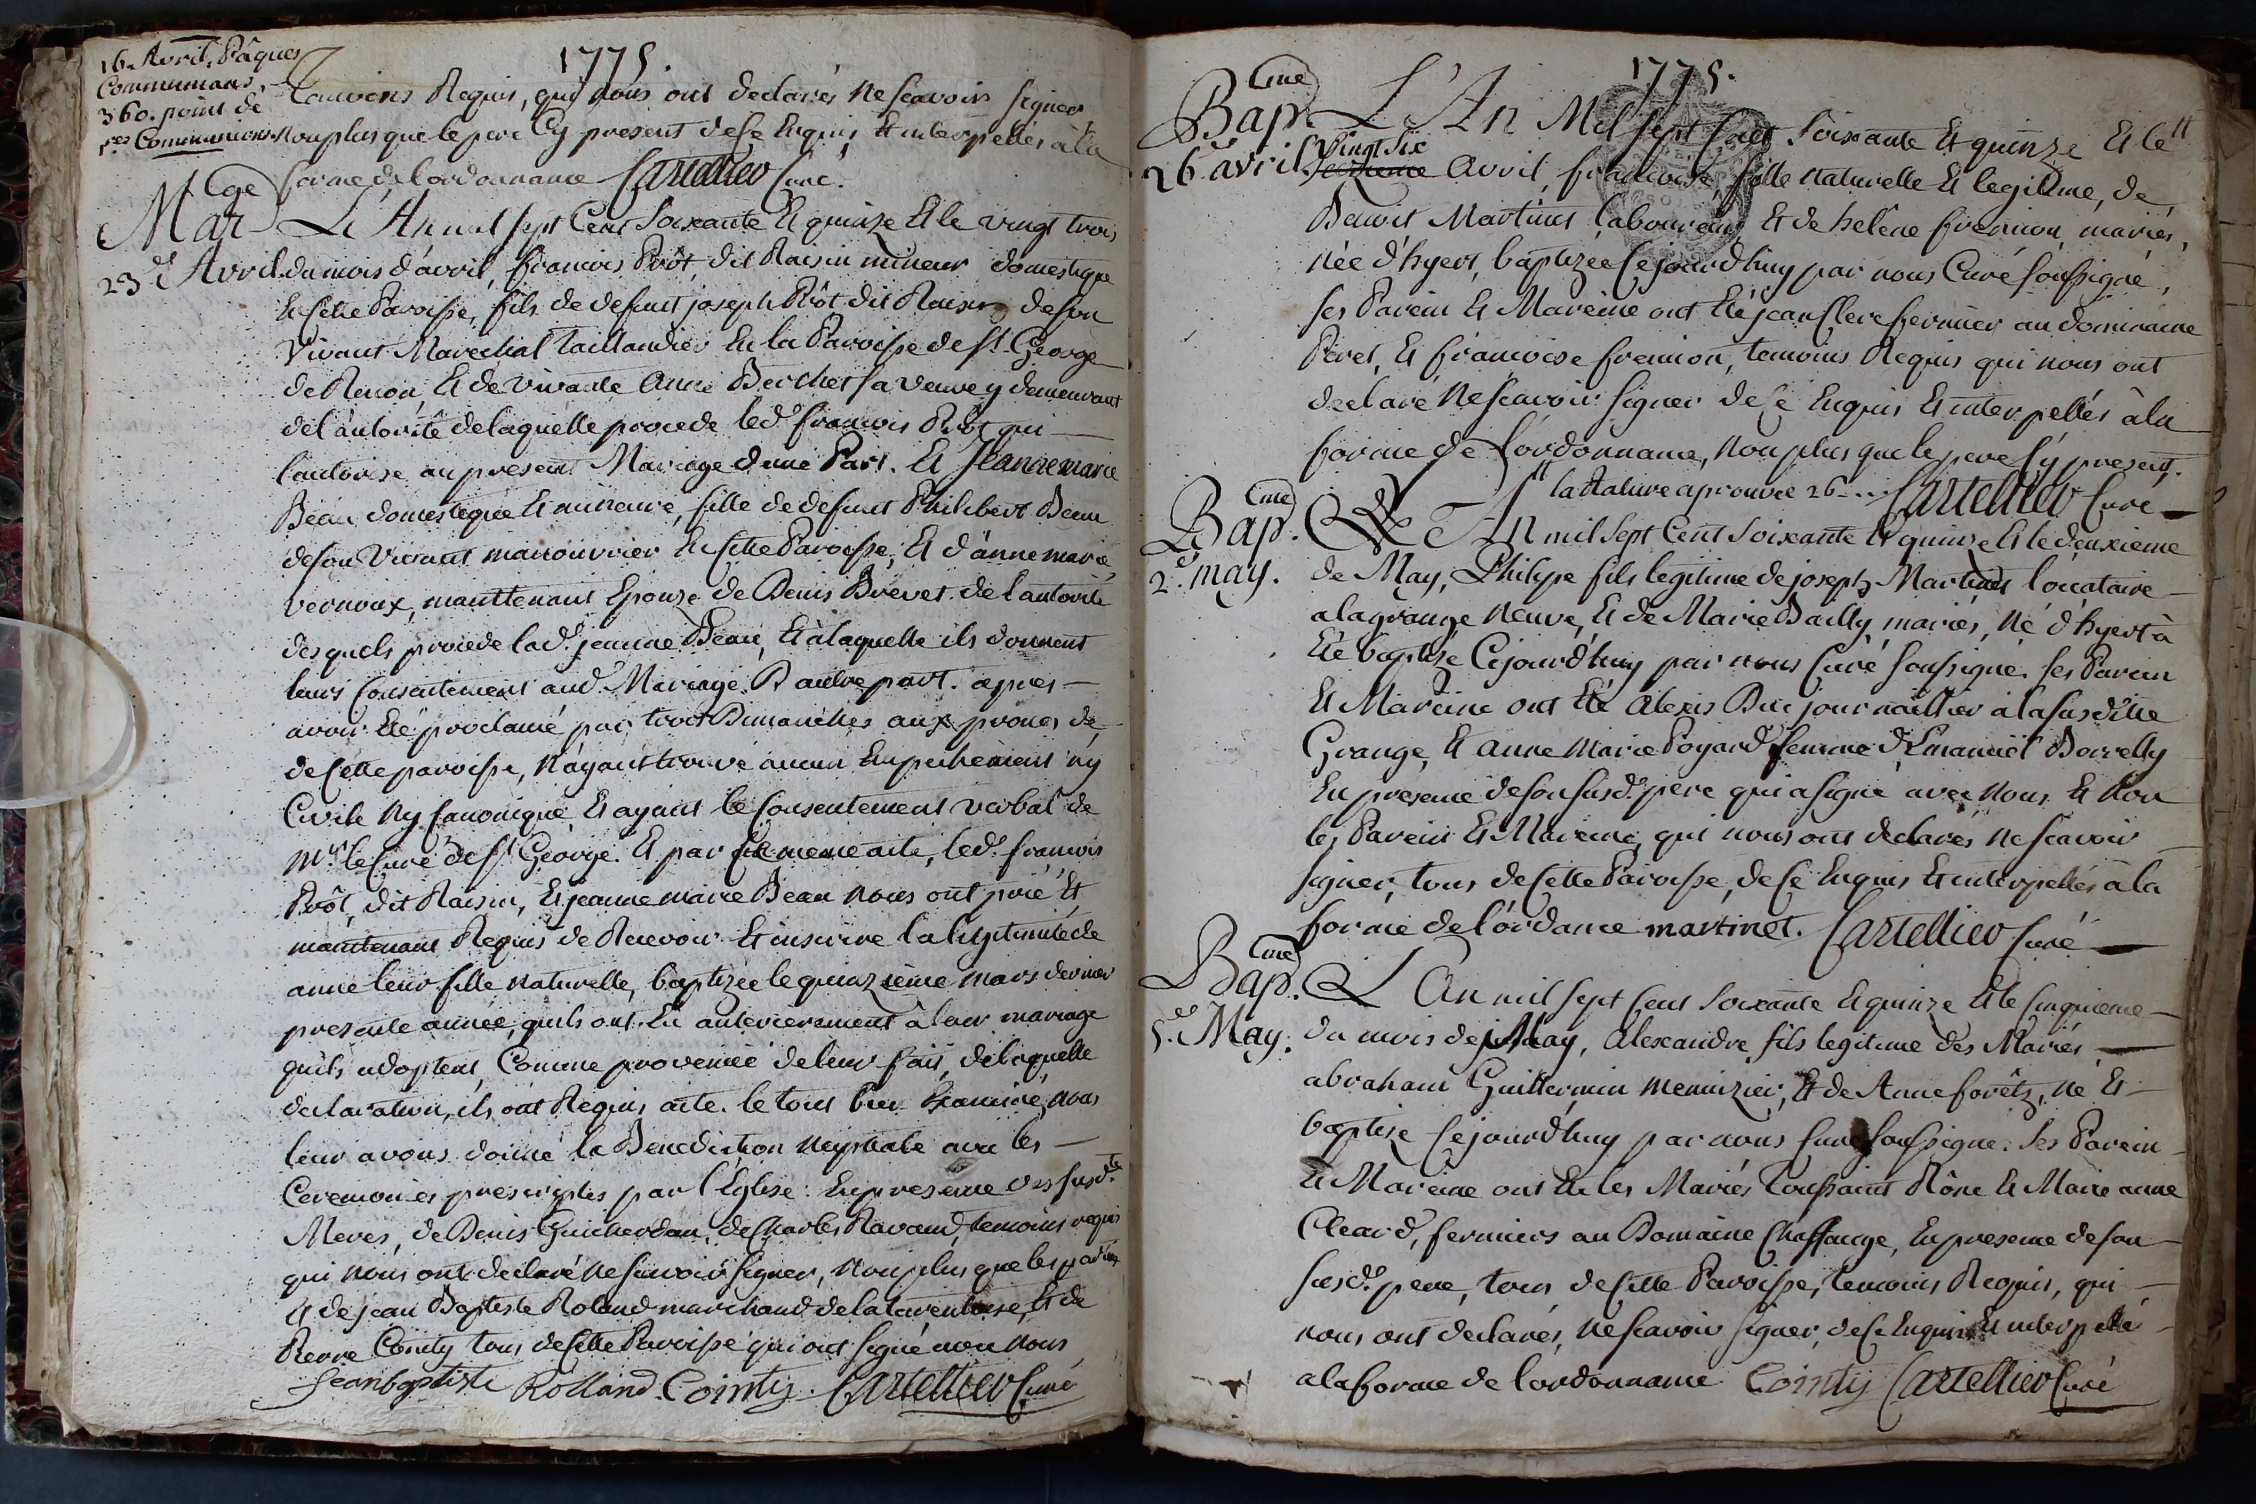 1775.
16 Avril, Pâques
Communians,
360. point de
1.res Communions.
temoins Requis, qui nous ont declarés ne scavoir signer
nonplus que le pere Cy present de ce Enquis, Et interpellés à la
forme de l'ordonnance Cartellier Curé.
Mar ge
23.e Avril.
L'An mil sept Cent soixante Et quinze Et le vingt trois
du mois d'avril, francois Prôt, dit Raisin mineur domestique
En cette Paroisse, fils de defunt joseph Prôt dit Raisin de son
vivant Marechal Taillandier En la Paroisse de st. George
de Renon, Et de vivante Anne Berchet sa veuve y demeurant
de l'autorité de laquelle procede led. francois Prôt qui
l'autorise au present Mariage d'une Part. Et Jeanne marie
Beau domestique Et mineure, fille de defunt Philibert Beau
de son vivant manouvrier En cette Paroisse, Et d'anne marie
vernoux, manttenant Epouze de Denis Brevet de l'autorité
desquels procede lad. jeanne Beau, Et à laquelle ils donnent
leurs Consentement aud. Mariage. D'autre part. après
avoir Eté proclamé par trois Dimanches aux prones de
de Cette paroisse, N'ayant trouvé aucun Enpechement ny
Civile Ny Canonique Et ayant le Consentement verbal de
Mr. le Curé de st. George. Et par ce meme acte, led. francois
Prôt, dit Raisin, Et jeanne marie Beau nous ont prié Et
manttenant Requis de Recevoir Et inscrire la legitimité de
anne leur fille naturelle, baptizée le quinzième mars dernier
presente année, quils ont Eu anterierement à leur mariage
quils adoptent, Comme provenüe de leur fait, de laquelle
declaration, ils ont Requis acte. le tout bien Examiné, nous
leur avons donné la Benediction Nuptiale avec les
Ceremonies prescriptes par l'Eglise. En presence des susd.tes
Meres, de Denis Guicherdan, de Charles Ravaud, temoins requis
qui nous ont declaré ne scavoir signer, Nonplus que les parties
Et de jean Baptiste Roland marchand de la tarentaise, Et de
Pierre Cointy tous de Cette Paroisse qui ont signé avec nous
Jeanbaptiste Rolland Cointy. Cartellier Curé
1775.
11
Bap. Cme
26.e avril.
L'An Mil sept Cent soixante Et quinze Et le
vingt six
Avril, francoise, fille naturelle Et legitime, de
Benoit Martinet laboureur Et de helêne fremion mariés,
Née d'hyert, baptizée Cejourd'huy par nous Curé soussigné,
ses Parein Et Mareine ont Eté jean Clere fermier au domaine
Péret, Et francoise fremion, temoins Requis qui nous ont
declaré Ne scavoir signer de ce Enquis Et interpellés à la
forme de l'ordonnance, Nonplus que le pere Cy present.
la Rature aprouvée 26... Cartellier Curé
Bap. Cme
2.e may.
L'An mil sept Cent soixante Et quinze Et le deuxieme
de May, Philipe fils legitime de joseph Martinet locataire
a la grange Neuve, Et de Marie Bailly mariés, Né d'hyert à
Eté baptize Cejourd'huy par nous Curé soussigné. ses Parein
Et Mareine ont Eté Alexis Buc journaillier à la susditte
Grange, Et anne Marie Poyard femme d'Emanuël Borrelly
En presence de son susd. pere qui a signé avec Nous Et Non
les Parein Et Mareine, qui nous ont declarés Ne scavoir
signer, tous de Cette Paroisse, de ce Enquis Et interpellés à la
forme de l'ordance martinet. Cartellier Curé
Bap. Cme
5.e May.
L'An mil sept Cent soixante Et quinze Et le Cinquieme
du mois de May, Alexandre fils legitime des Mariés
abraham Guillermin Menuizier, Et de Anne forêtz, Né Et
baptize Cejourd'huy par nous Curé soussigné. ses Parein
Et Mareine ont Eté les Mariés Toussaint Rône Et Marie anne
Cleard, fermiers au Domaine Chaffange, En presence de son
susd. pere, tous de Cette Paroisse, temoins Requis, qui
nous ont declarés, Ne scavoir signer, de ce Enquis Et interpellé
a la forme de l'ordonnance Cointy Cartellier Curé